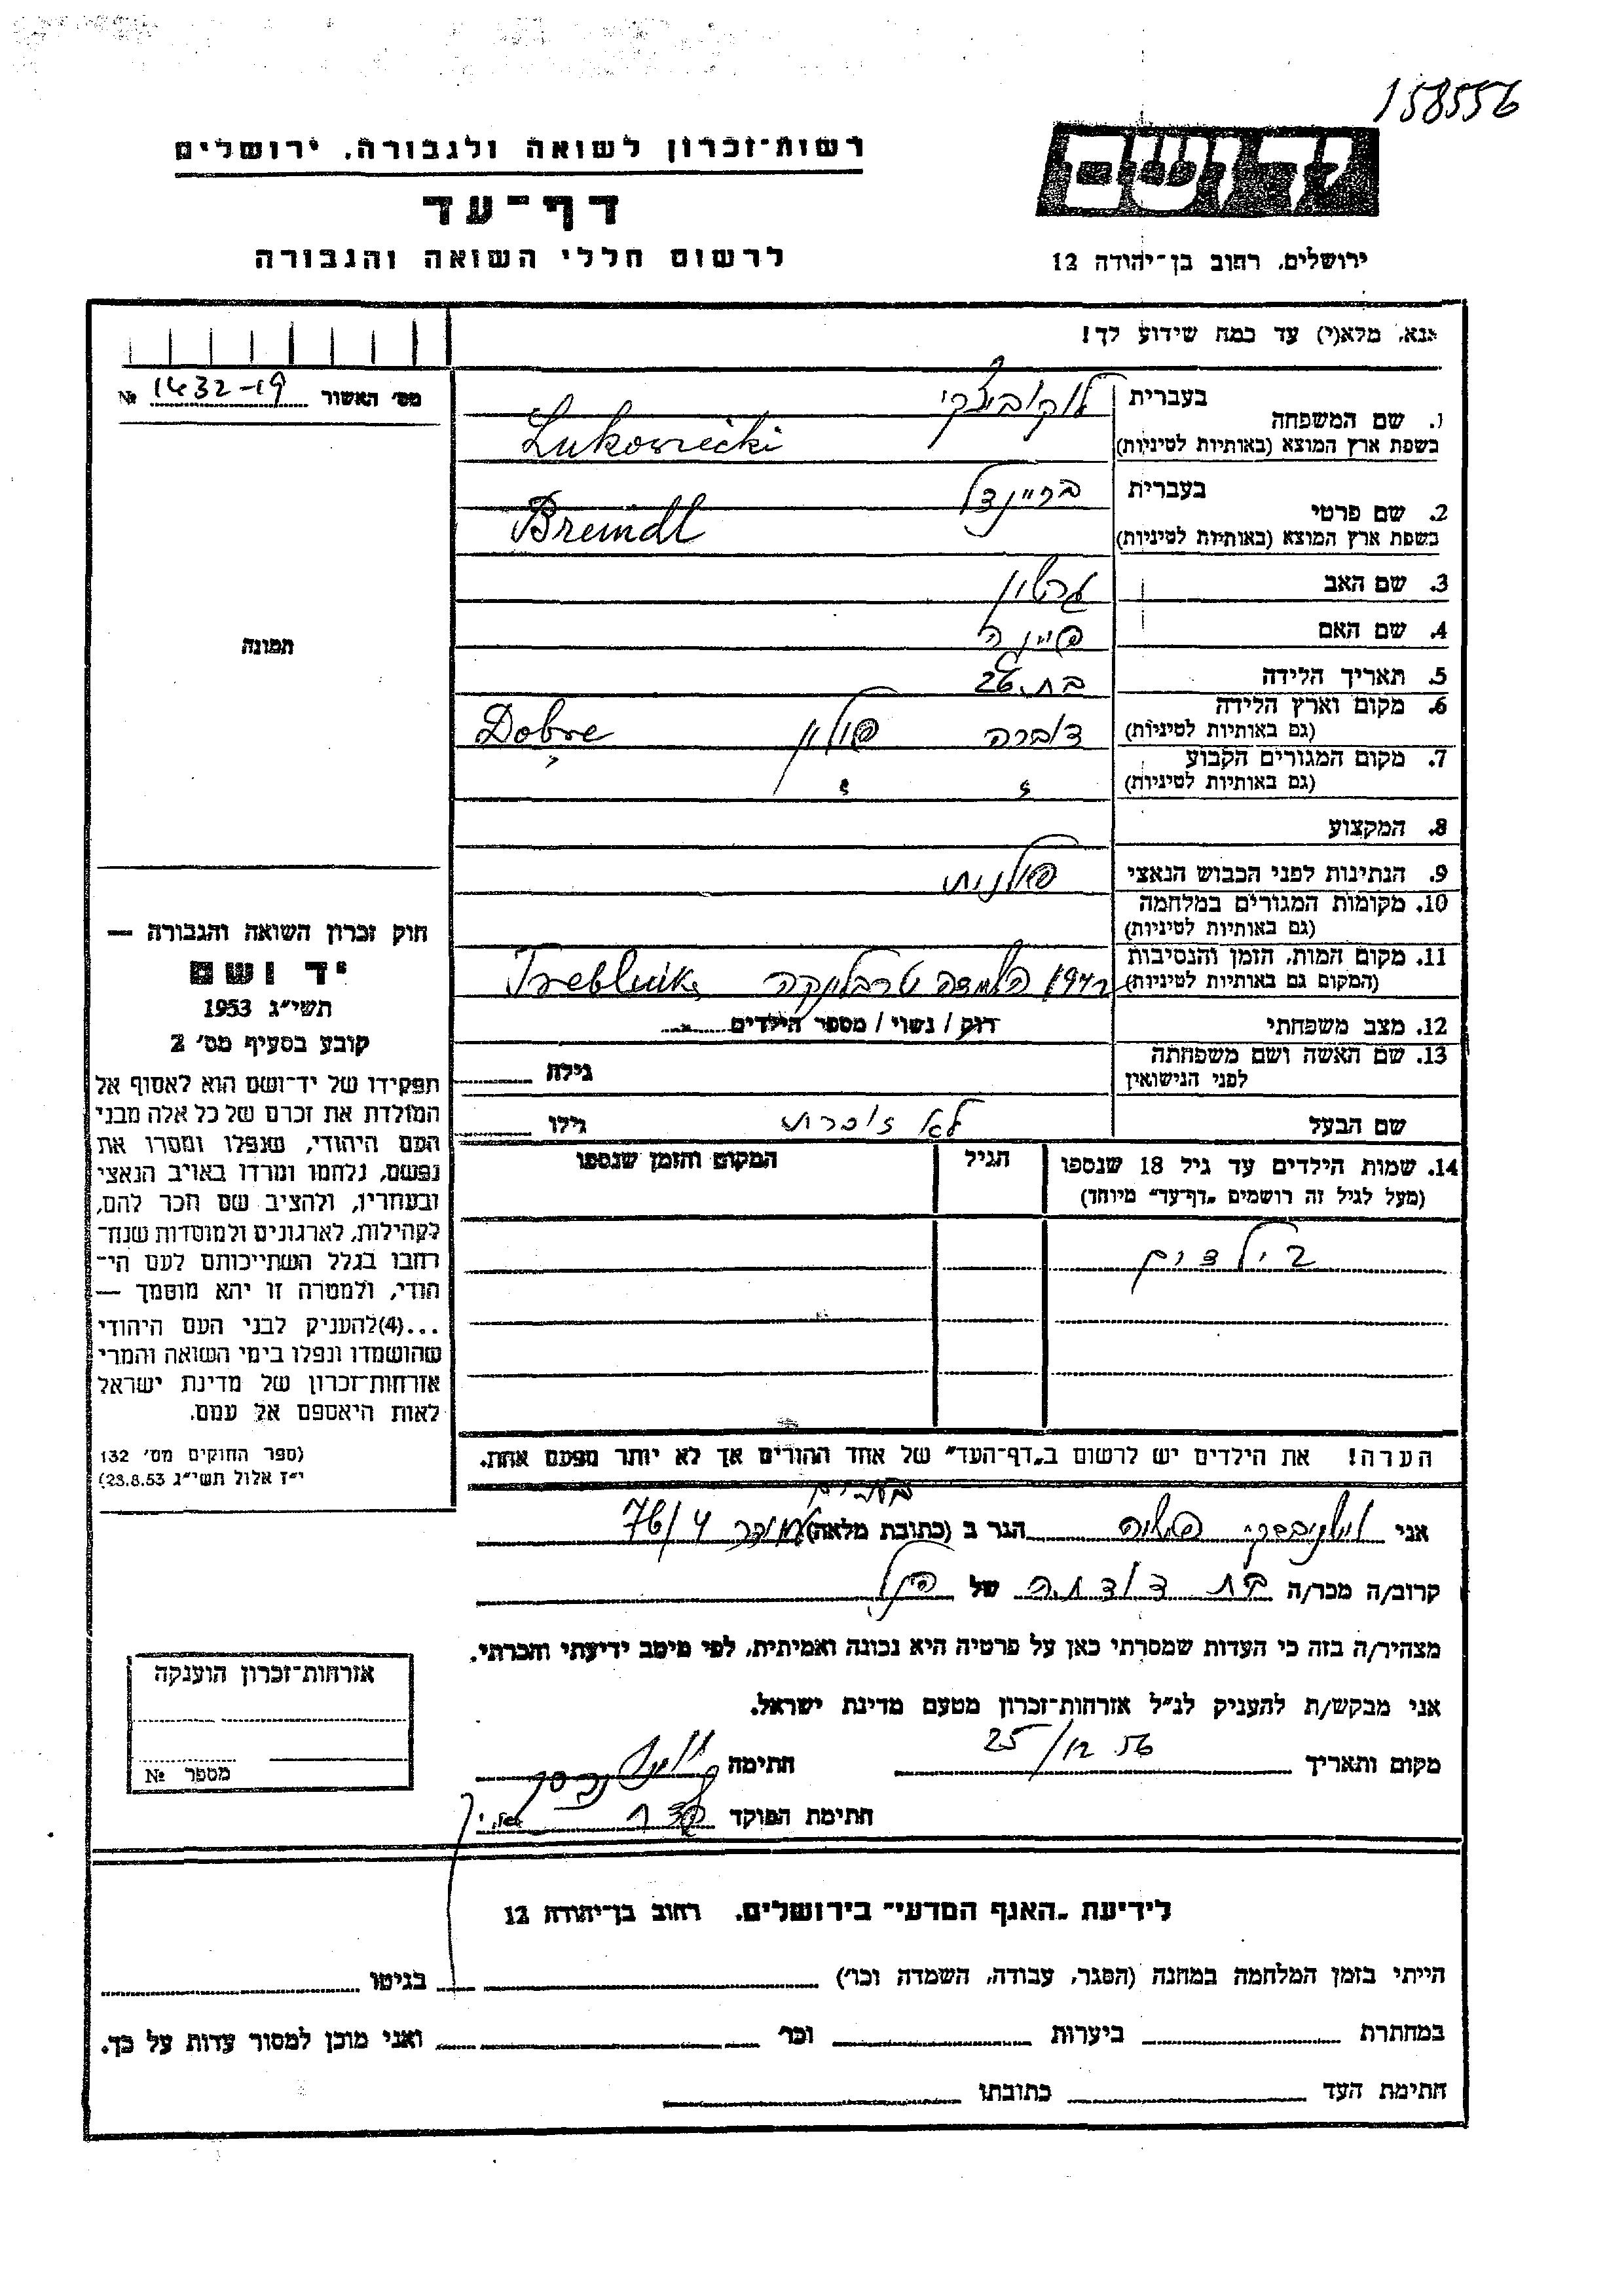 158556
רשות־זכרון לשואה ולגבורה, ירושלים
יד ושם
דף־עד
לרשום חללי השואה והגבורה
ירושלים, רחוב בן־יהודה 12
אנא, מלא(י) עד כמה שידוע לך!
מס' האשור 1432-19 №
1. שם המשפחה
בעברית לוקוביצקי
בשפת ארץ המוצא (באותיות לטיניות) Lukowiecki
2. שם פרטי
בעברית בריינדל
בשפת ארץ המוצא (באותיות לטיניות) Breindl
3. שם האב גרשון
4. שם האם
5. תאריך הלידה בת 26
6. מקום וארץ הלידה
(גם באותיות לטיניות) דוברה פולין Dobre
7. מקום המגורים הקבוע
(גם באותיות לטיניות) " "
8. המקצוע
9. הנתינות לפני הכבוש הנאצי פולנית
10. מקומות המגורים במלחמה
(גם באותיות לטיניות)
11. מקום המות, הזמן והנסיבות
(המקום גם באותיות לטיניות) טרבלינקה
12. מצב משפחתי רוק / נשוי / מספר הילדים
13. שם האשה ושם משפחתה
לפני הנישואין גילה
שם הבעל לא זוכרת גילו
14. שמות הילדים עד גיל 18 שנספו
(מעל לגיל זה רושמים „דף־עד" מיוחד)
הגיל
המקום והזמן שנספו
2 ילדים
הערה! את הילדים יש לרשום ב„דף־העד" של אחד ההורים אך לא יותר מפעם אחת.
תמונה
חוק זכרון השואה והגבורה —
יד ושם
תשי"ג 1953
קובע בסעיף מס' 2
תפקידו של יד־ושם הוא לאסוף אל
המולדת את זכרם של כל אלה מבני
העם היהודי, שנפלו ומסרו את
נפשם, נלחמו ומרדו באויב הנאצי
ובעוזריו, ולהציב שם וזכר להם,
לקהילות, לארגונים ולמוסדות שנח־
רבו בגלל השתייכותם לעם הי־
הודי, ולמטרה זו יהא מוסמך —
...(4)להעניק לבני העם היהודי
שהושמדו ונפלו בימי השואה והמרי
אזרחות־זכרון של מדינת ישראל
לאות היאספם אל עמם.
(ספר החוקים מס' 132
י"ז אלול תשי"ג 28.8.53)
אני הגר ב (כתובת מלאה) 76/4
קרוב/ה מכר/ה בת דודתה של הנ"ל
מצהיר/ה בזה כי העדות שמסרתי כאן על פרטיה היא נכונה ואמיתית, לפי מיטב ידיעתי והכרתי.
אני מבקש/ת להעניק לנ"ל אזרחות־זכרון מטעם מדינת ישראל.
מקום ותאריך 25/12 56 חתימה
חתימת הפוקד
אזרחות־זכרון הוענקה
מספר №
לידיעת „האגף המדעי" בירושלים, רחוב בן־יהודה 12
הייתי בזמן המלחמה במחנה (הסגר, עבודה, השמדה וכו') בגיטו
במחתרת ביערות וכו' ואני מוכן למסור עדות על כך.
חתימת העד כתובתו